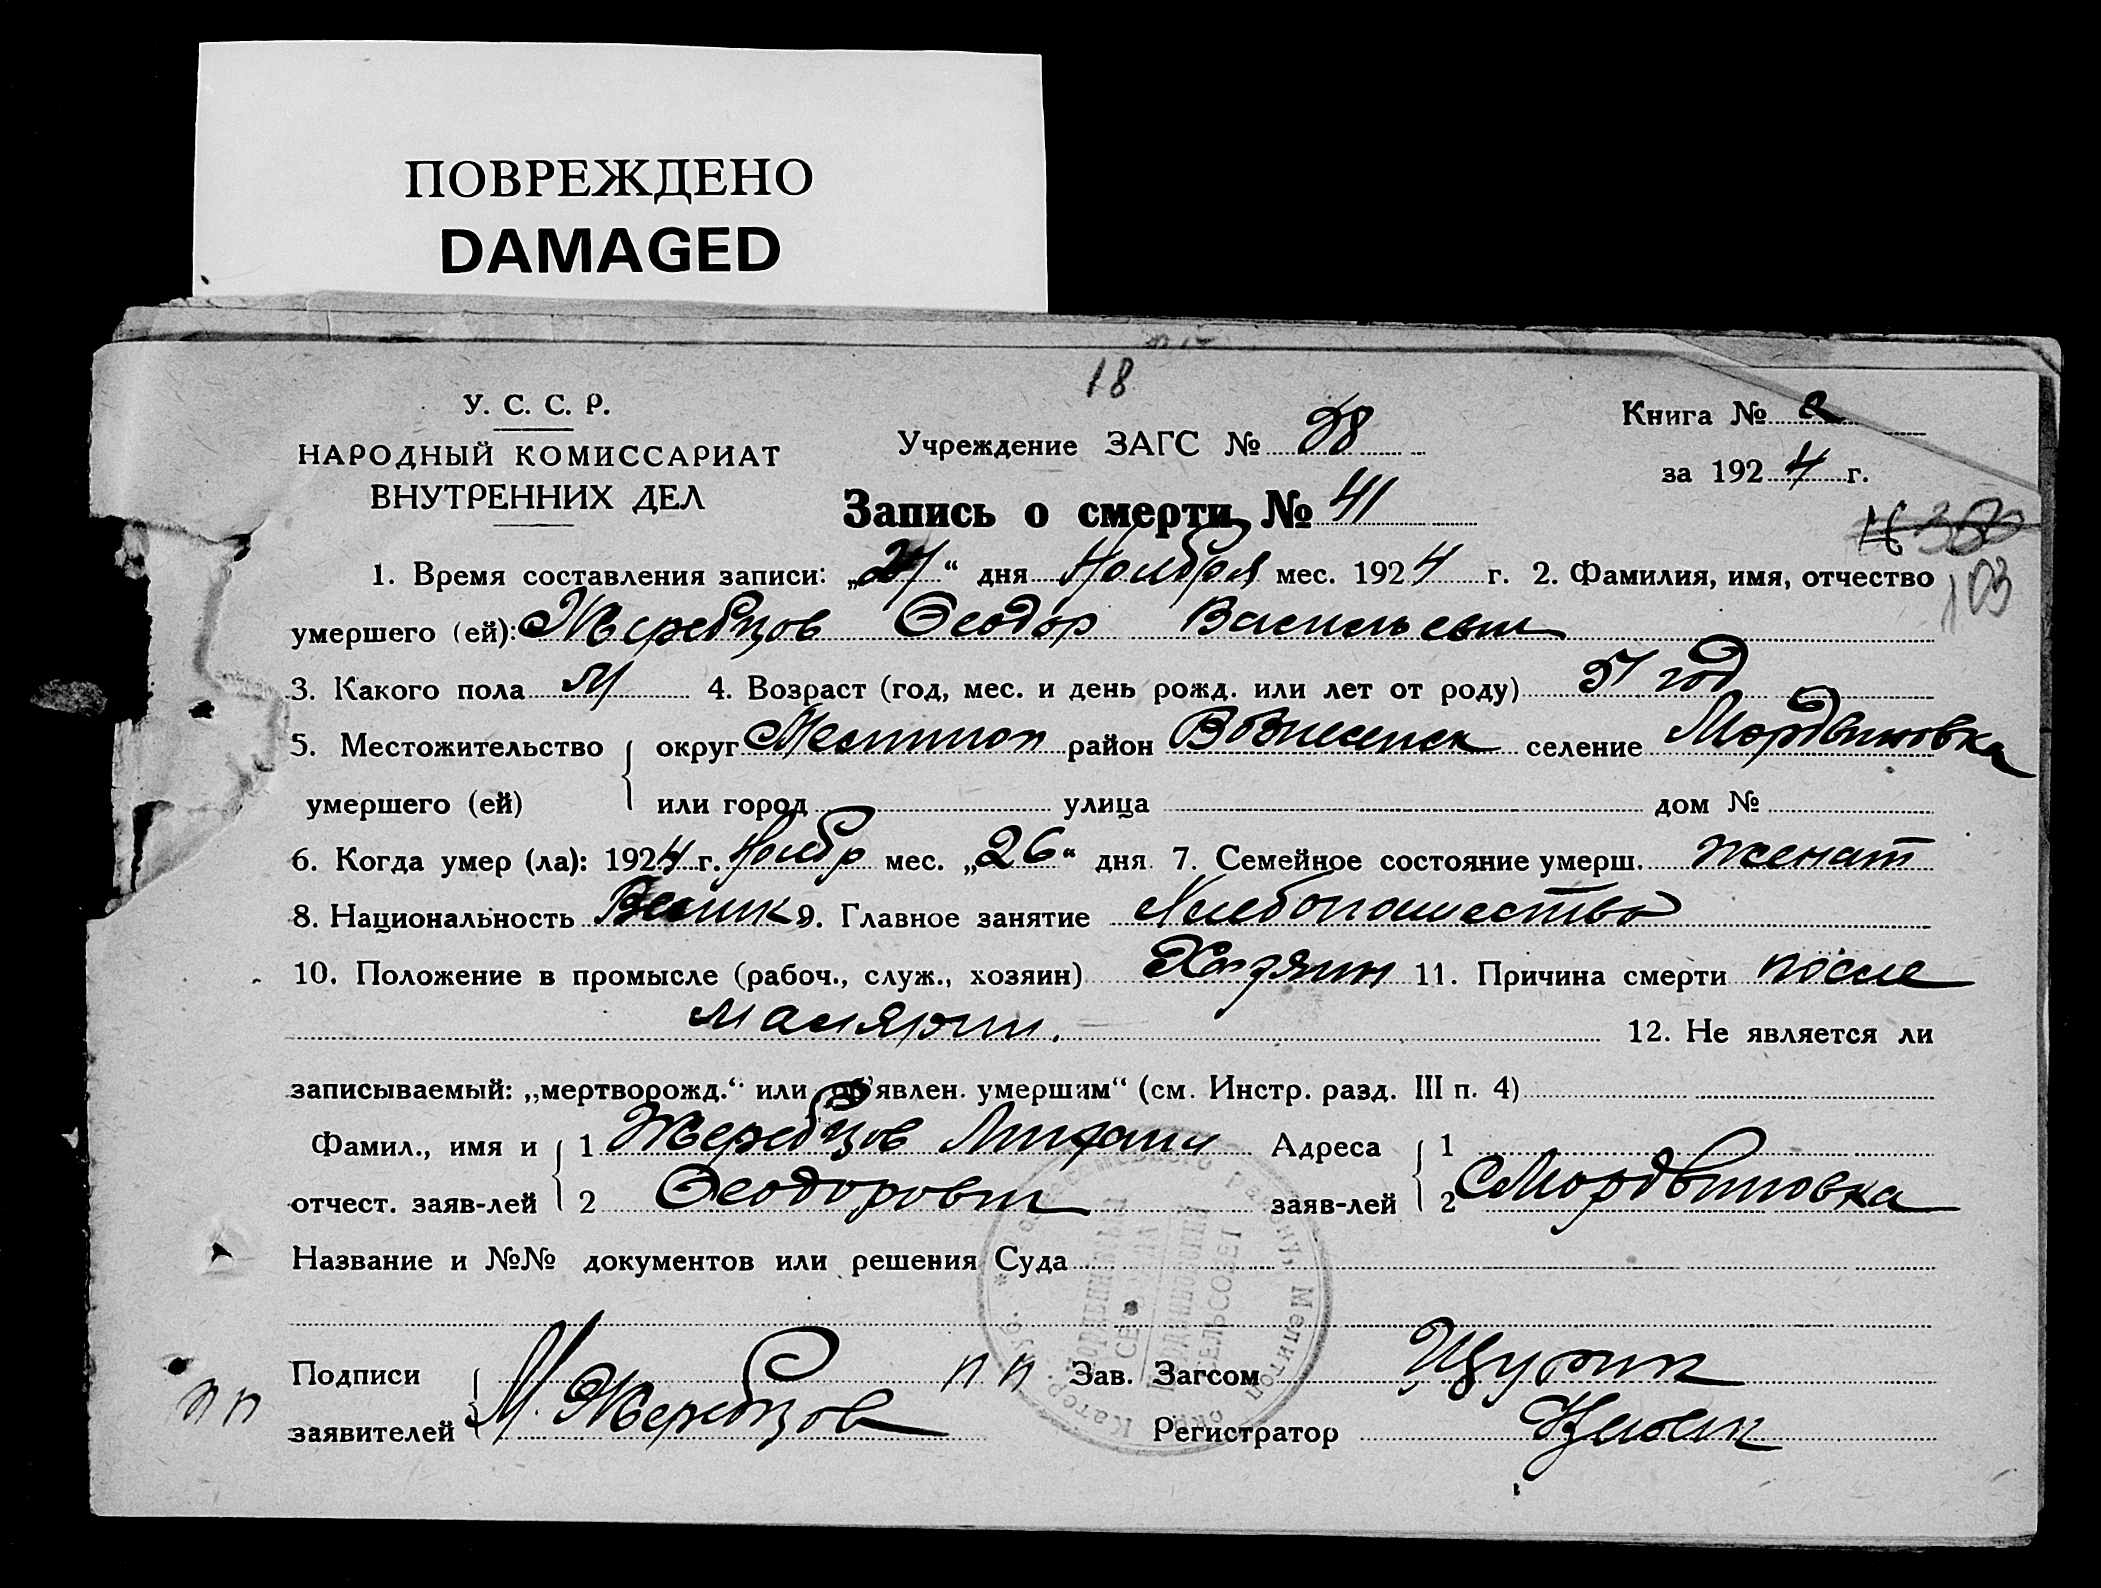 ПОВРЕЖДЕНО
DAMAGED
18
У. С. С. Р.
НАРОДНЫЙ КОМИССАРИАТ
ВНУТРЕННИХ ДЕЛ
Учреждение ЗАГС № 58
Книга № 2
за 1924 г.
Запись о смерти № 41
103
1. Время составления записи: „27“ дня Ноября мес. 1924 г. 2. Фамилия, имя, отчество
умершего (ей): Жеребцов Феодор Васильевич
3. Какого пола М 4. Возраст (год, мес. и день рожд. или лет от роду) 57 год
5. Местожительство округ Мелитоп район Вознесенск селение Мордвиновка
умершего (ей) или город улица дом №
6. Когда умер (ла): 1924 г. Ноябр мес. „26“ дня 7. Семейное состояние умерш. женат
8. Национальность 9. Главное занятие Хлебопашество
10. Положение в промысле (рабоч., служ., хозяин) Хозяин 11. Причина смерти после
малярии. 12. Не является ли
записываемый: „мертворожд.“ или об’явлен. умершим“ (см. Инстр. разд. III п. 4)
Фамил., имя и 1 Жеребцов Михаил Адреса 1
отчест. заяв-лей 2 Феодорович заяв-лей 2 С Мордвиновка
Название и №№ документов или решения Суда
Подписи пп Зав. Загсом Щурик
пп
заявителей М. Жеребцов Регистратор
СЕЛЬСОВЕТ